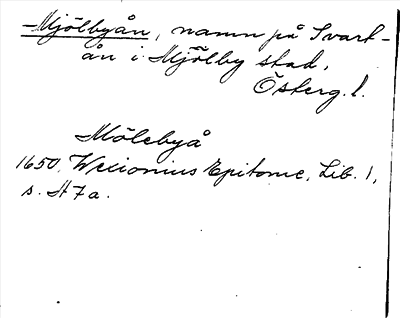 Mjölbyån, namn på Svart-
ån i Mjölby stad,
Österg. l.
Mölebyå
1650. Wexionius Epitome, Lib. 1,
s. H 7 a.